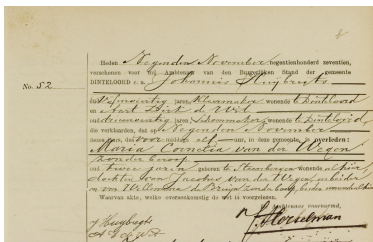 Heden Negenden November negentienhonderd zeventien,
verschenen voor mij, Ambtenaar van den Burgerlijken Stand der gemeente
DINTELOORD c.a. Johannis Huijbregts
No. 52
oud jaren, Kleermaker wonende te Dinteloord
en Aart Dirk de Wit
oud jaren, Schoenmaker wonende te Dinteloord,
die verklaarden, dat op Negenden November
dezes jaars, des voormiddags elf ure, in deze gemeente, is overleden:
Maria Cornelia van der Wegen
zonder beroep
oud twee jaren geboren te Steenbergen wonende alhier
dochter van Jacobus van der Wegen arbeider
en van Willemina de Bruijn zonder beroep, beiden wonende alhier
Waarvan akte, welke overeenkomstig de wet is voorgelezen.
De Ambtenaar voornoemd,
J Huijbregts
A D de Wit